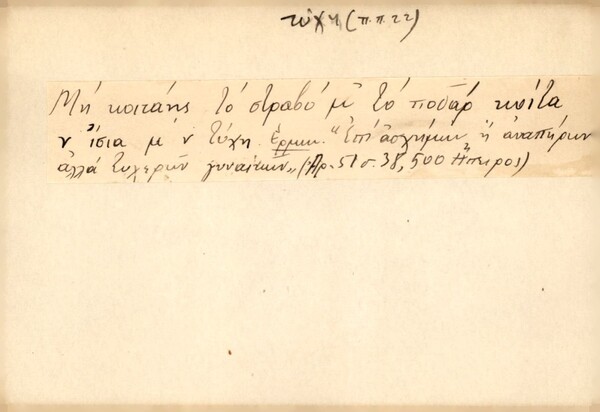 τύχη (π.π. 22)
Μή κοιτάης τό στραβό μ' τό ποδάρ κοίτα
ν ἴσια μ' ν τύχη. Ερμην. "Ἐπί ἀσχήμων ἤ ἀναπήρων
ἀλλά τυχερῶν γυναικῶν" (Αρ. 51 σ. 38, 500 Ἤπειρος)